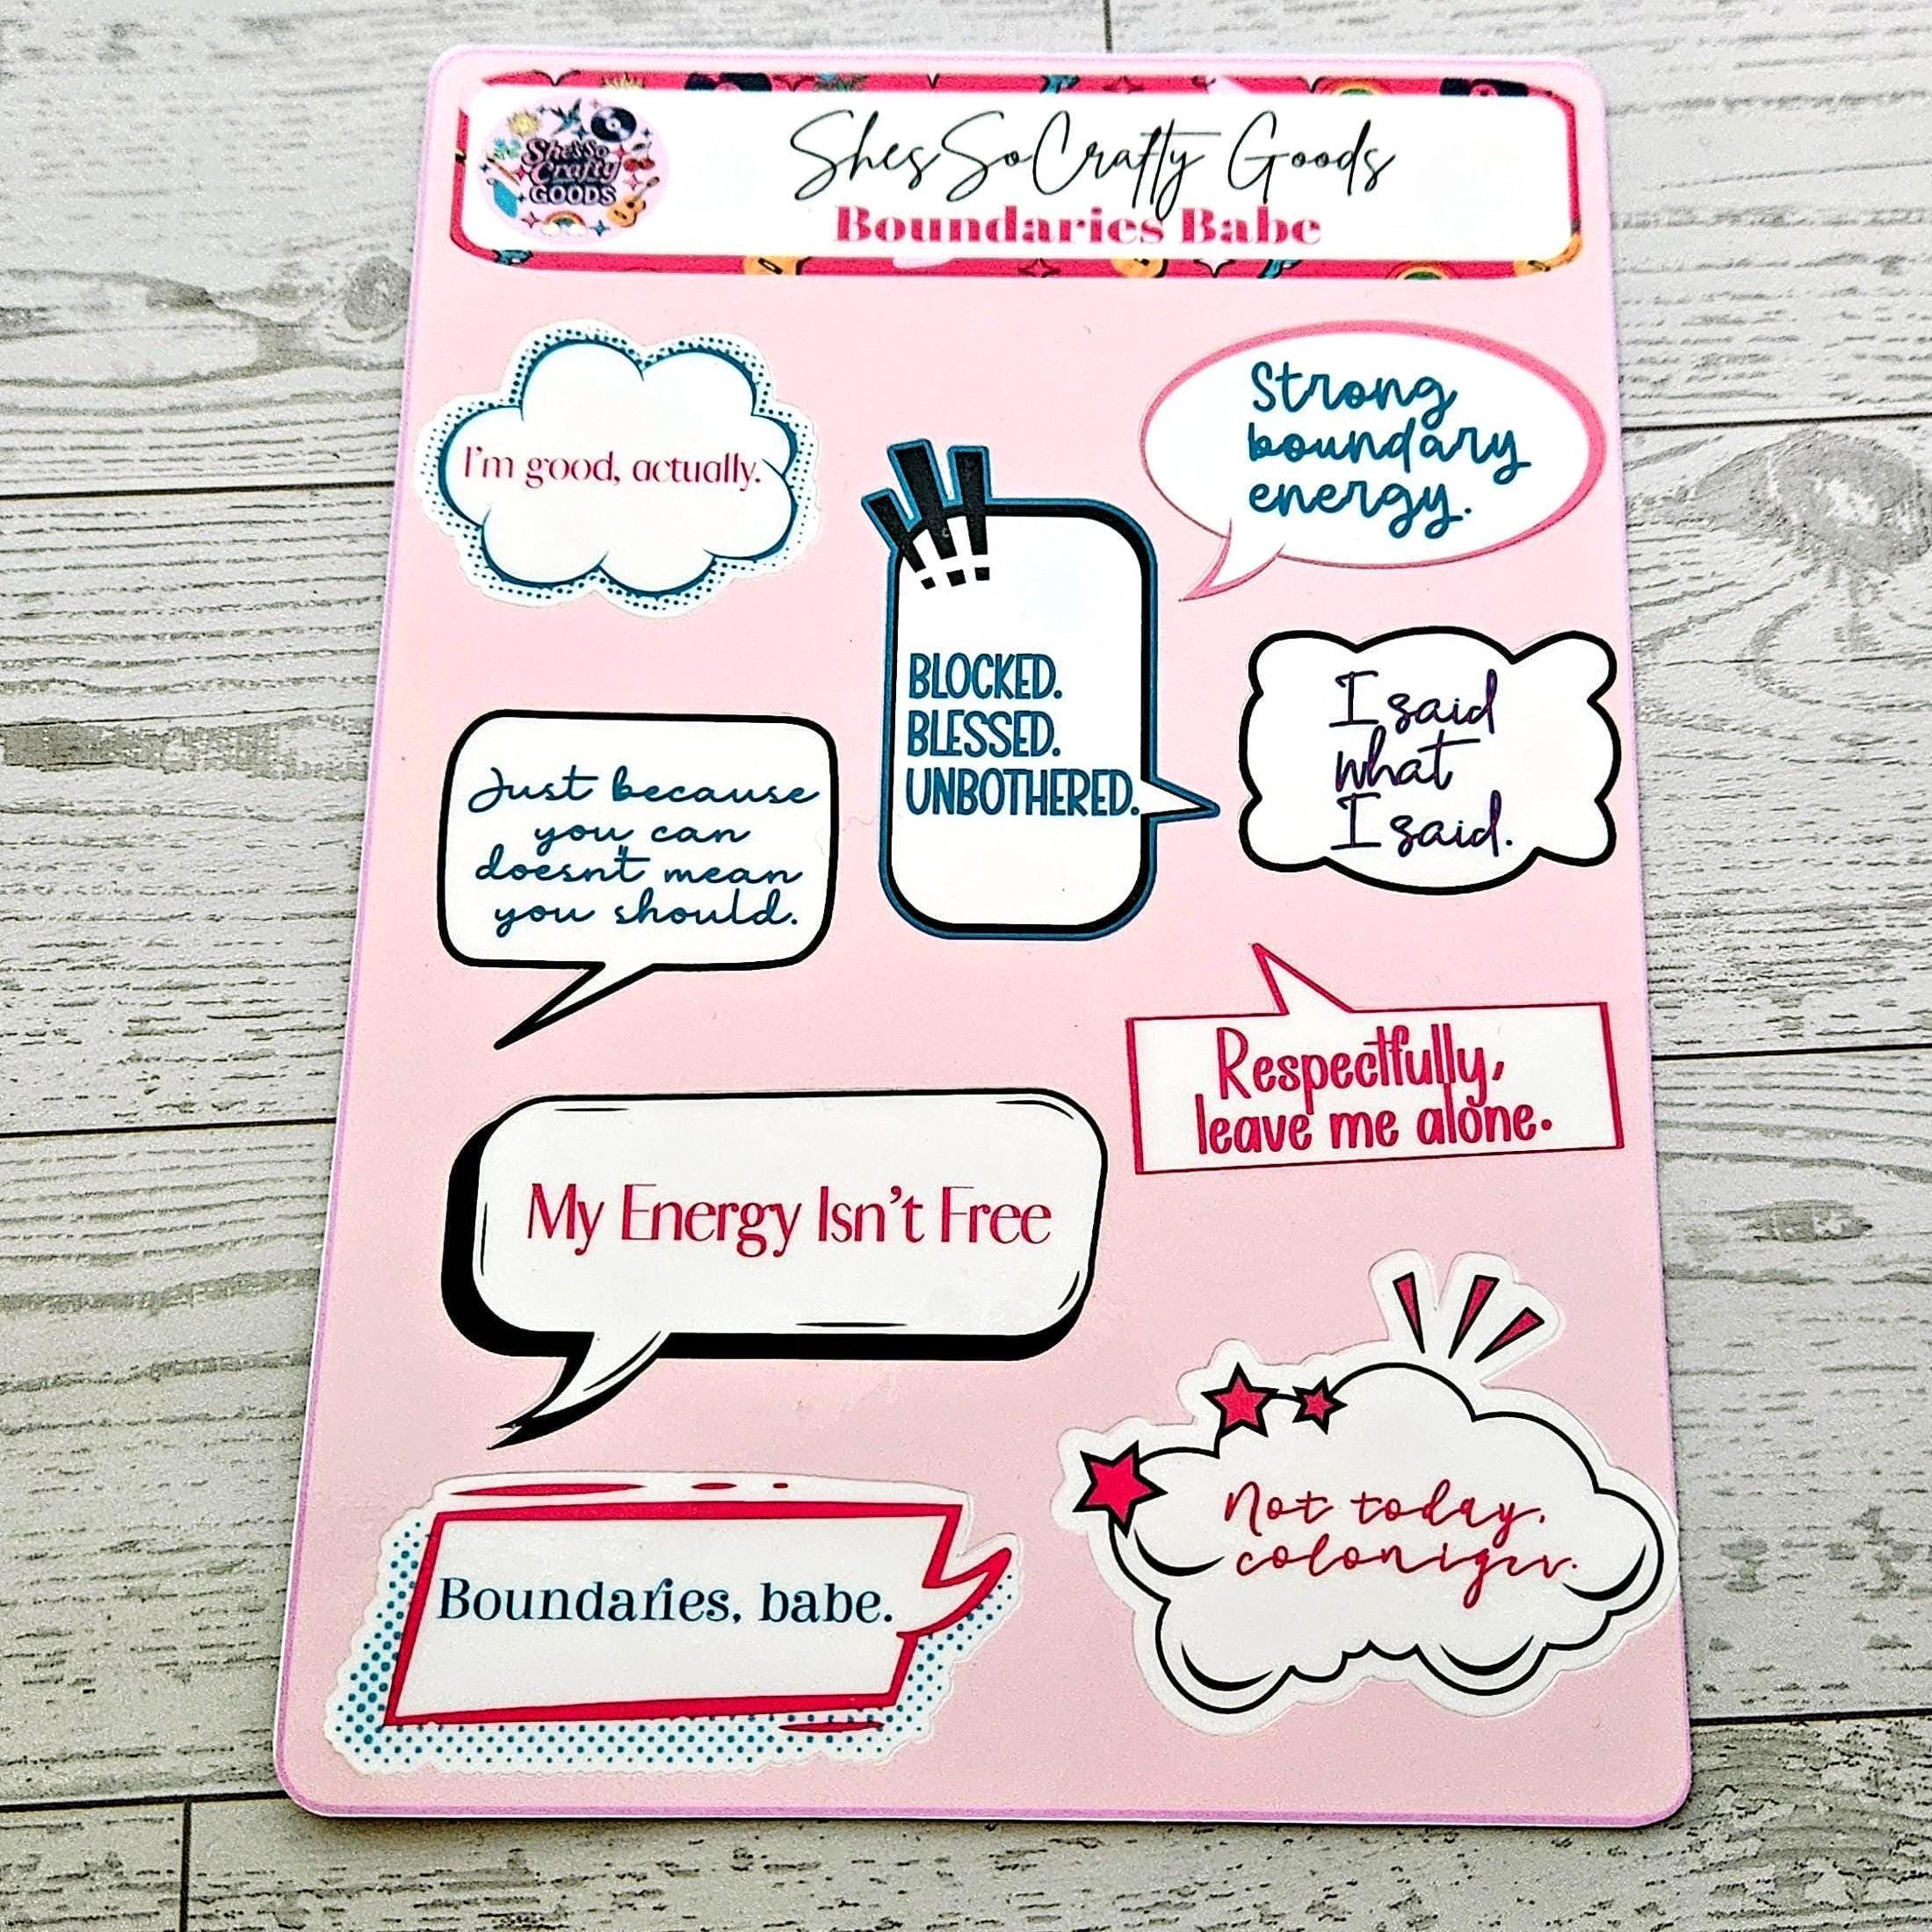 She's So
Crafty
GOODS
ShesSoCrafty Goods
Boundaries Babe
I'm good, actually.
Strong
boundary
energy.
BLOCKED.
BLESSED.
UNBOTHERED.
I said
what
I said.
Just because
you can
doesn't mean
you should.
Respectfully,
leave me alone.
My Energy Isn't Free
Not today,
colonizer.
Boundaries, babe.